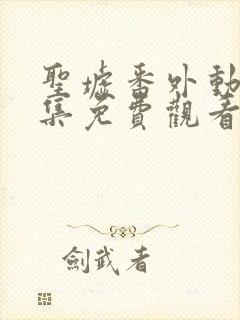 聖墟番外動
集免費觀看
劍武者